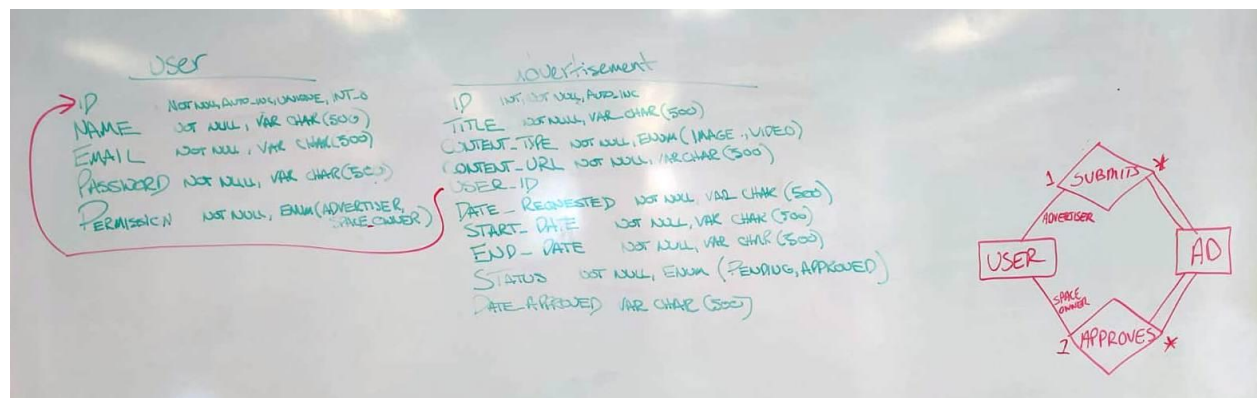 User
ID NOT NULL, AUTO_INC, UNIQUE, INT
NAME NOT NULL, VAR CHAR (500)
EMAIL NOT NULL, VAR CHAR(500)
PASSWORD NOT NULL, VAR CHAR(500)
PERMISSION NOT NULL, ENUM(ADVERTISER,
SPACE_OWNER)
Advertisement
ID INT, NOT NULL, AUTO_INC
TITLE NOT NULL, VAR_CHAR(500)
CONTENT-TYPE NOT NULL, ENUM(IMAGE, VIDEO)
CONTENT-URL NOT NULL, VARCHAR(500)
USER_ID
DATE_REQUESTED NOT NULL, VAR CHAR (500)
START_DATE NOT NULL, VAR CHAR (500)
END_DATE NOT NULL, VAR CHAR (500)
STATUS NOT NULL, ENUM (PENDING, APPROVED)
DATE-APPROVED VAR CHAR (500)
1 SUBMITS *
ADVERTISER
USER
AD
SPACE
OWNER
1 APPROVES *